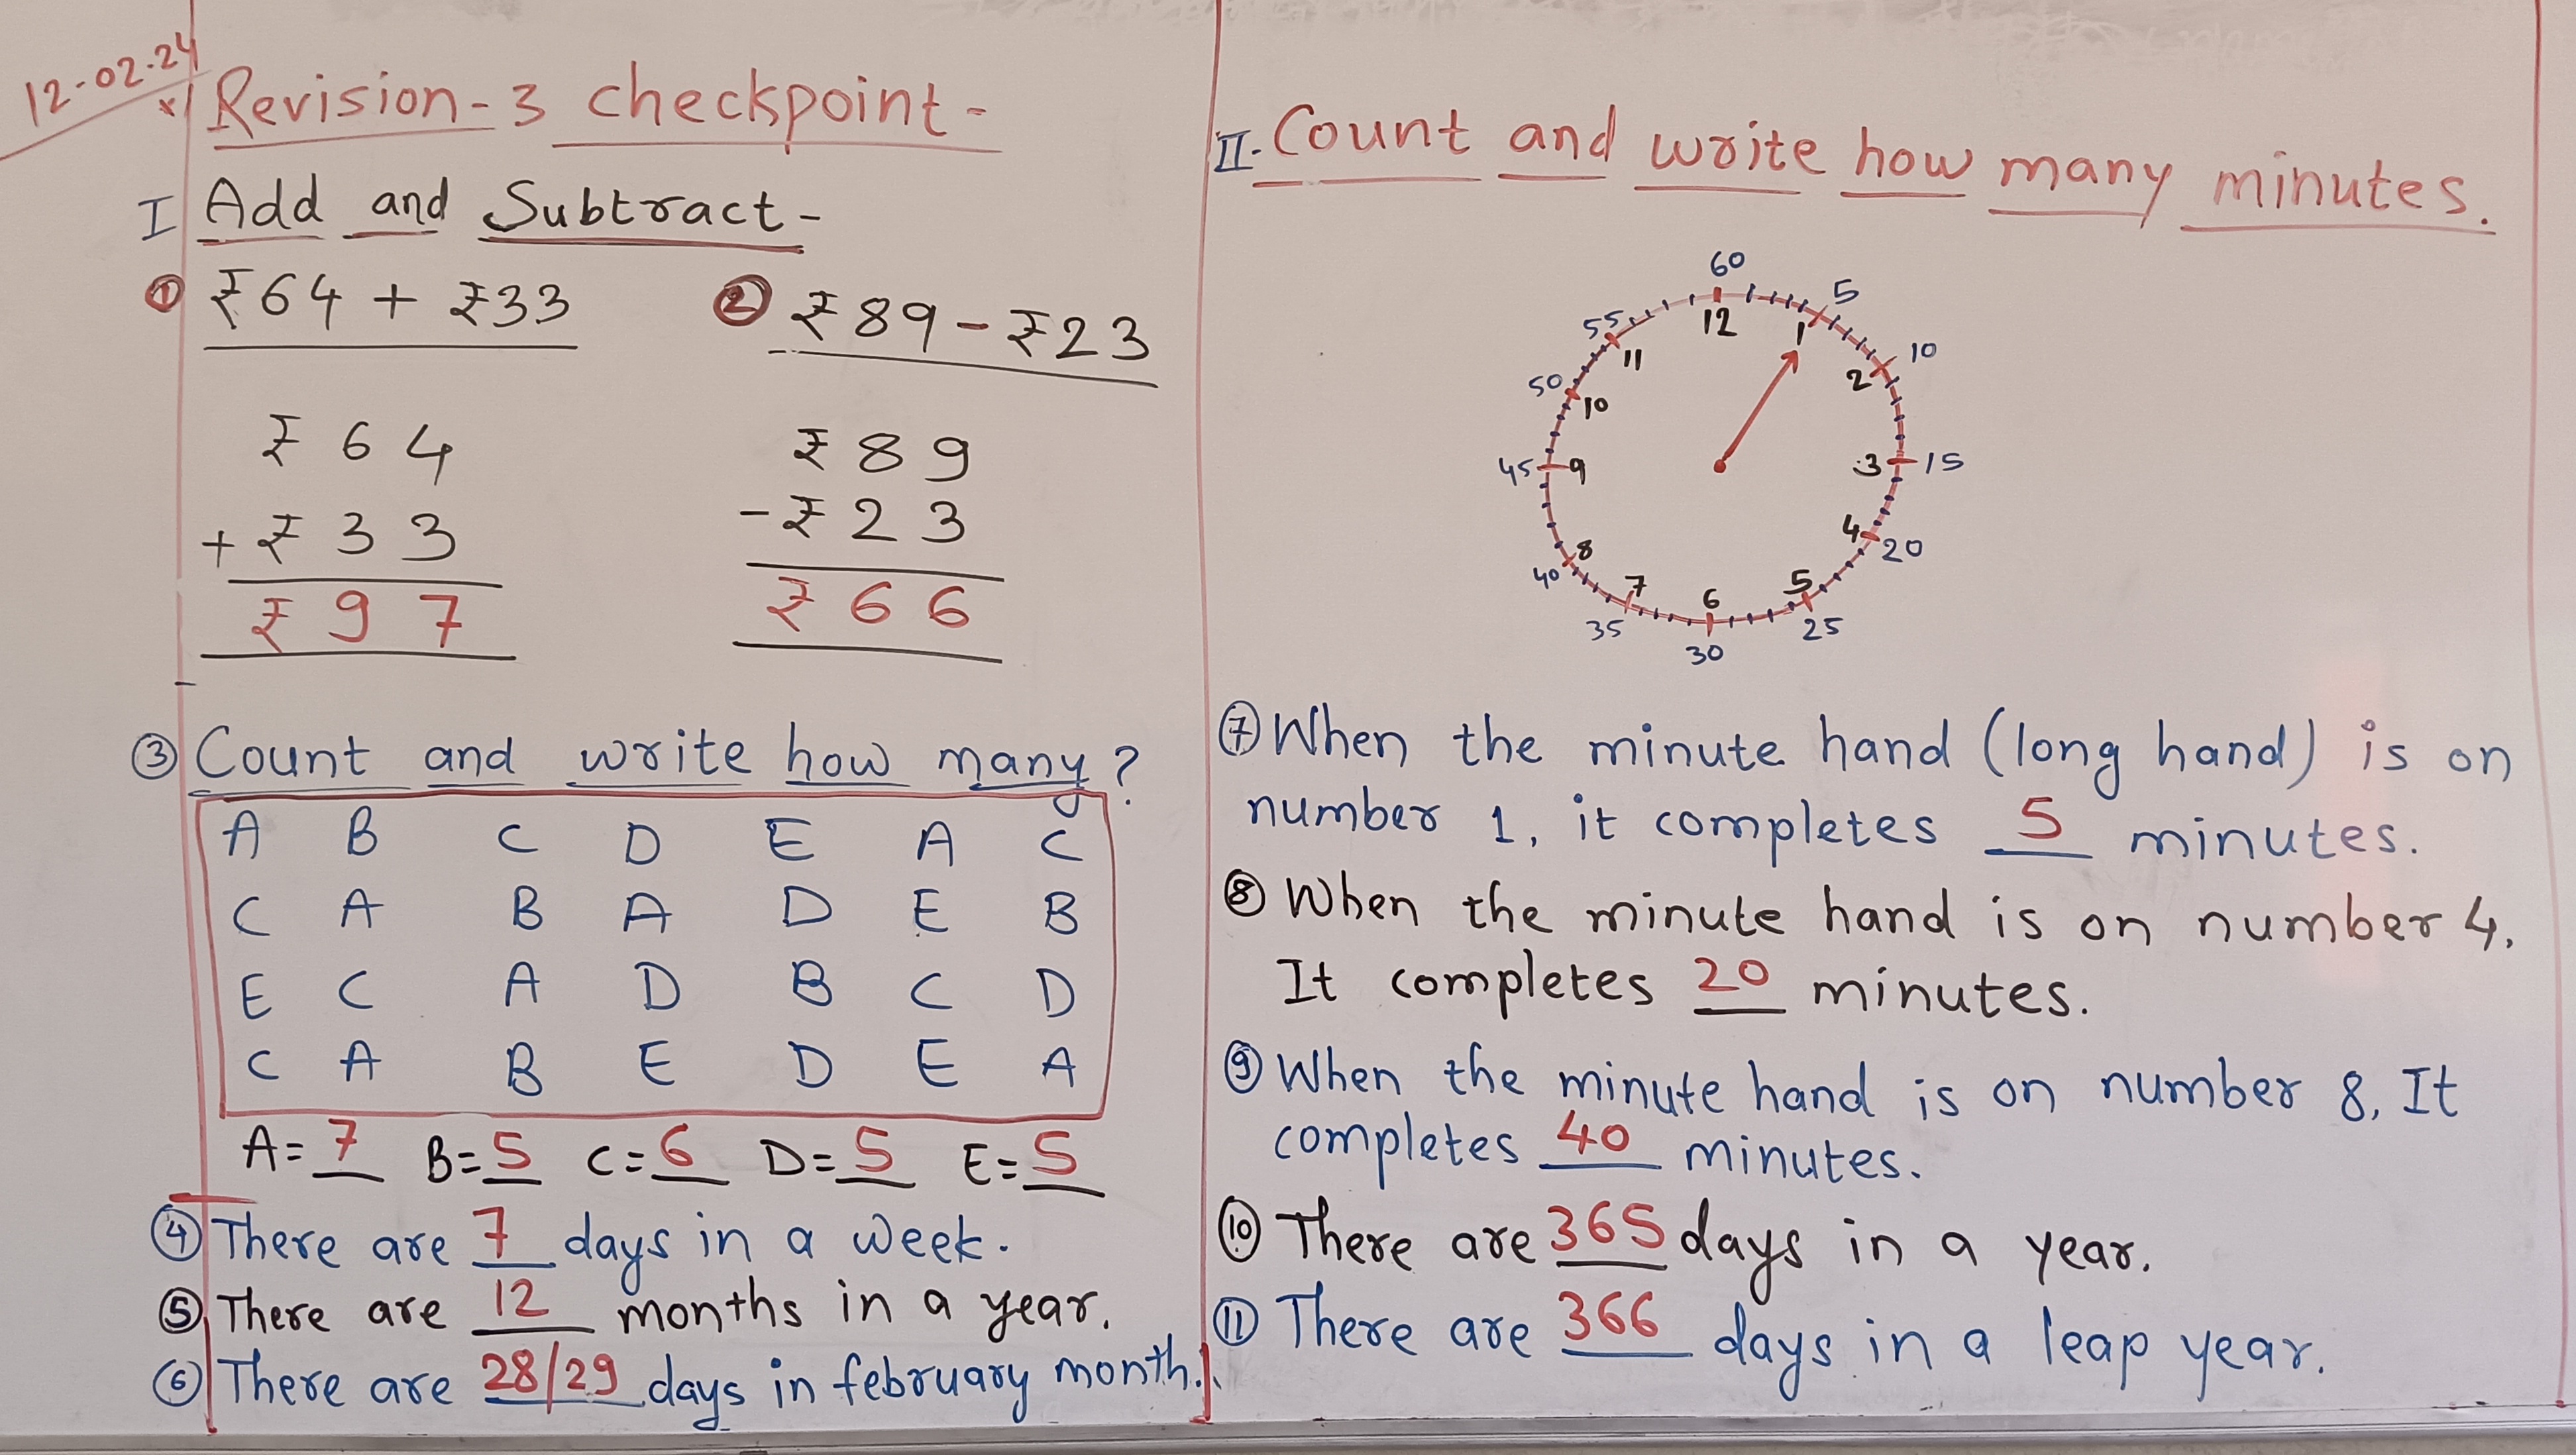 12-02-24
Revision-3 checkpoint-
I Add and Subtract-
① ₹64 + ₹33
② ₹89 - ₹23
₹ 6 4
+ ₹ 3 3
₹ 9 7
₹ 8 9
- ₹ 2 3
₹ 6 6
③ Count and write how many?
A B C D E A C
C A B A D E B
E C A D B C D
C A B E D E A
A= 7 B= 5 C= 6 D= 5 E= 5
④ There are 7 days in a week.
⑤ There are 12 months in a year.
⑥ There are 28/29 days in february month.
II- Count and write how many minutes.
60
12
5
1
10
2
15
3
20
4
25
5
30
6
35
7
40
8
45
9
50
10
55
11
⑦ When the minute hand (long hand) is on
number 1, it completes 5 minutes.
⑧ When the minute hand is on number 4,
It completes 20 minutes.
⑨ When the minute hand is on number 8, It
completes 40 minutes.
⑩ There are 365 days in a year.
⑪ There are 366 days in a leap year.